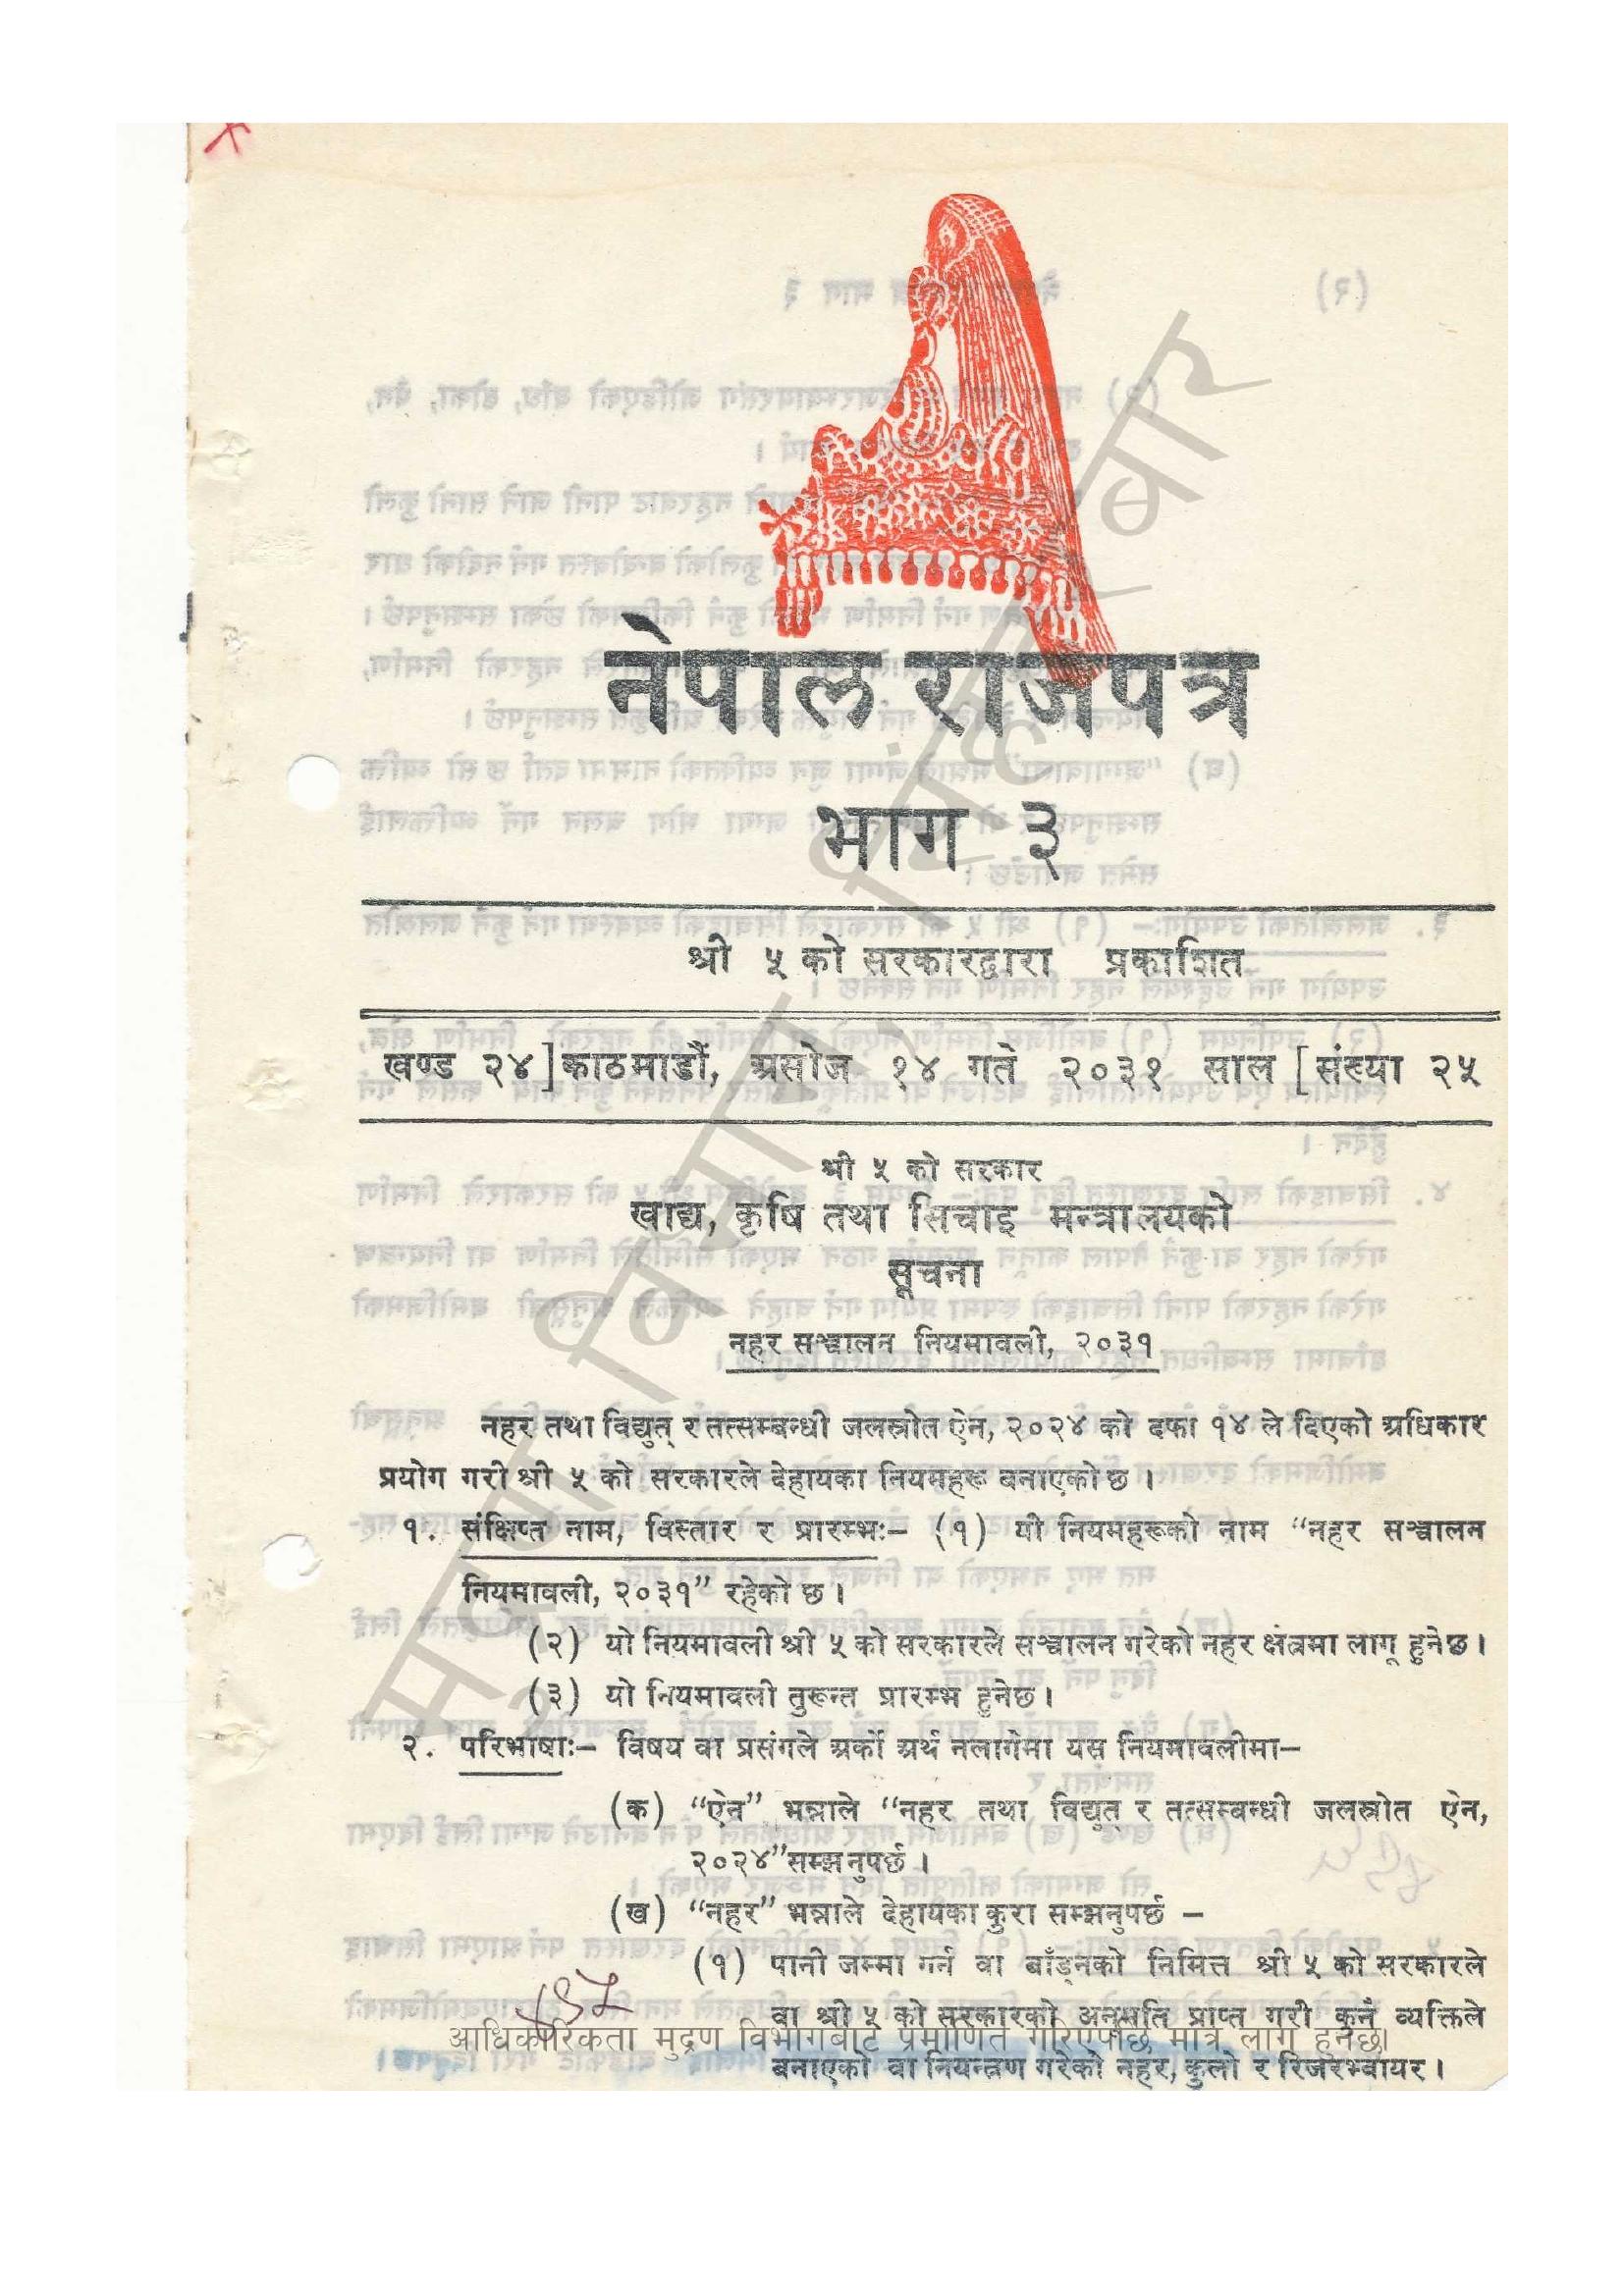 नेपाल राजपत्र
भाग ३
श्री ५ को सरकारद्वारा प्रकाशित
खण्ड २४] काठमाडौं, असोज १४ गते २०३१ साल [संख्या २५
श्री ५ को सरकार
खाद्य, कृषि तथा सिचाइ मन्त्रालयको
सूचना
नहर सञ्चालन नियमावली, २०३१
नहर तथा विद्युत् र तत्सम्बन्धी जलस्रोत ऐन, २०२४ को दफा १४ ले दिएको अधिकार
प्रयोग गरी श्री ५ को सरकारले देहायका नियमहरू बनाएको छ ।
१. संक्षिप्त नाम, विस्तार र प्रारम्भः– (१) यी नियमहरूको नाम “नहर सञ्चालन
नियमावली, २०३१” रहेको छ ।
(२) यो नियमावली श्री ५ को सरकारले सञ्चालन गरेको नहर क्षेत्रमा लागू हुनेछ ।
(३) यो नियमावली तुरून्त प्रारम्भ हुनेछ ।
२. परिभाषाः– विषय वा प्रसंगले अर्को अर्थ नलागेमा यस नियमावलीमा–
(क) “ऐन” भन्नाले “नहर तथा विद्युत् र तत्सम्बन्धी जलस्रोत ऐन,
२०२४” सम्झनुपर्छ ।
(ख) “नहर” भन्नाले देहायका कुरा सम्झनुपर्छ –
(१) पानी जम्मा गर्न वा बाँड्नको निमित्त श्री ५ को सरकारले
वा श्री ५ को सरकारको अनुमति प्राप्त गरी कुनै व्यक्तिले
आधिकारिकता मुद्रण विभागबाट प्रमाणित गरिएपछि मात्र लागू हुनेछ।
बनाएको वा नियन्त्रण गरेको नहर, कुलो र रिजरभ्वायर ।
मुद्रण विभाग, सिंहदरबार